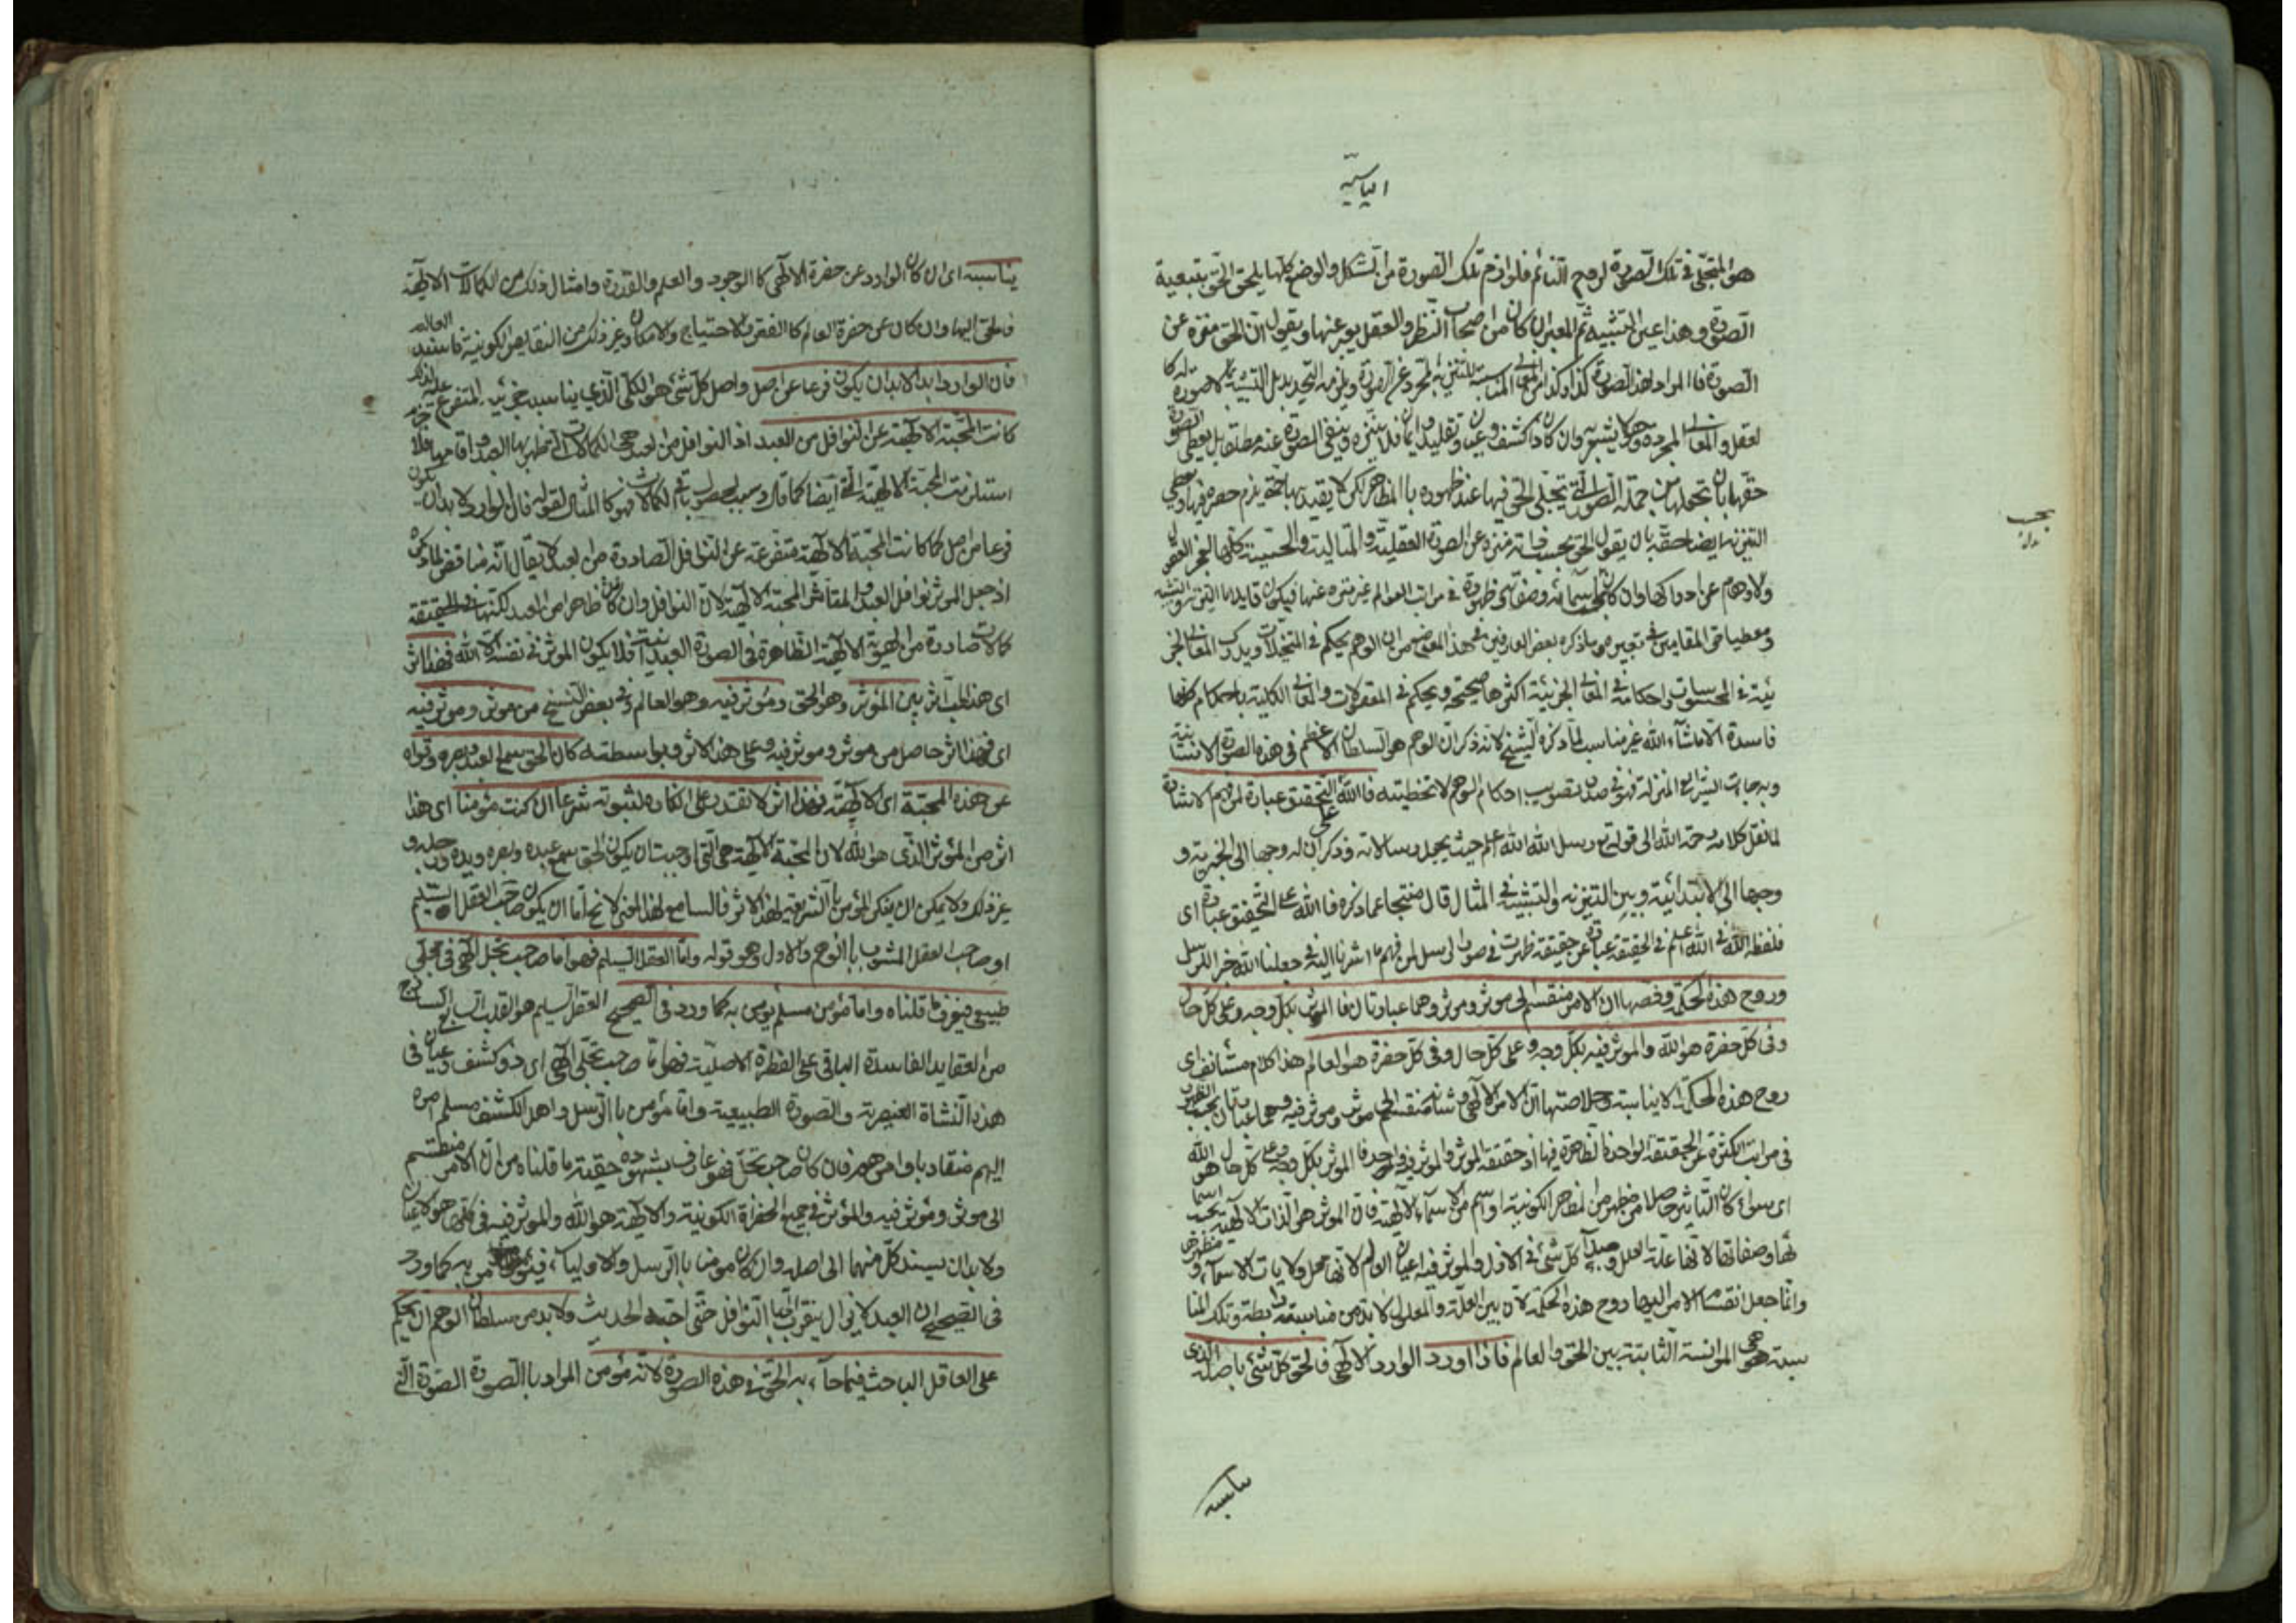 الياسية
هو المتجلى فى تلك الصورة لروح النائم فلوازم تلك الصورة من الشكل والوضع كلها يلحق الحق بتبعية
الصورة وهذا عين التشبيه ثم المعبر ان كان من اصحاب النظر والعقل يعبر عنها ويقول ان الحق منزه عن
الصورة فالمراد بهذه الصورة كذا وكذا من المعانى المناسبة للتنزيه المجرد عن الصورة ويلزمه التحديد بل التشبيه بما لا صورة له كا
لعقل والمعانى المجردة وان كان ذا كشف وعيان وتقليد ايمان فلا ينزه وينفى الصورة عنه مطلقا بل يعطى الصورة
حقها بان يجعلها من جملة الصور التى تجلى الحق فيها عند ظهوره بالمظاهر لكن لا يقيد بها حتى يلزم حصره فيها ويعطى
التنزيه ايضا حقه بان يقول الحق بحسب ذاته منزه عن الصورة العقلية والمثالية والحسية كلها لعجز العقول
والاوهام عن ادراكها وان كان بحسب اسمائه وصفاته وظهوره فى مراتب العوالم غير منزه عنها فيكون قايلا بالتنزيه والتشبيه
ومعطيا حق المقامين فى تعبيره وما ذكره بعض العارفين فى هذا الموضع من ان الوهم يحكم فى المتخيلات ويدرك المعانى الجز
ئية فى المحسوسات واحكامه فى المعانى الجزئية اكثرها صحيحة ويحكم فى المعقولات والمعانى الكلية باحكام كلها
فاسدة الا ما شاء الله غير مناسب لما ذكره الشيخ لانه ذكر ان الوهم هو السلطان الاعظم فى هذه الصورة الانسانية
وبه جاءت الشرايع المنزلة فهو فى صدد تصويب احكام الوهم لا تخطيته فالله على التحقيق عبارة لمن فهم الاشارة
لما نقل كلامه رحمة الله الى قوله تع رسل الله الله اعلم حيث يجعل رسالاته وذكر ان له وجها الى الخبرية و
وجها الى الابتدائية وبين التنزيه والتشبيه فى المثال قال منتجا عما ذكره فالله على التحقيق عبارة اى
فلفظ الله فى الله اعلم فى الحقيقة عبارة عن حقيقة ظهرت فى صور الرسل لمن فهم ما اشرنا اليه فى جعلنا الله خبر الرسل
وروح هذه الحكمة وفصها ان الامر منقسم الى موثر وموثر فيه وهما عبارتان فالموثر بكل وجه وعلى كل حال
وفى كل حضرة هو الله والموثر فيه بكل وجه وعلى كل حال وفى كل حضرة هو العالم هذا كلام مستانف اى
روح هذه الحكمة الايناسية وخلاصتها ان الامر الالهى وشانه منقسم الى موثر وموثر فيه وهما عبارتان بحسب الظهور
فى مراتب الكثرة عن الحقيقة الواحدة الظاهرة فيها اذ حقيقة الموثر والموثر فيه واحد فالموثر بكل وجه وعلى كل حال هو الله
اى سواء كان التاثير حاصلا من مظهر من المظاهر الكونية او اسم من الاسماء الالهية فان الموثر هو الذات الالهية بحسب اسما
ئها وصفاتها لانها علة العلل ومبدأ كل شىء فى الازل والموثر فيه اعيان العالم لانها محل ولايات الاسماء ومظاهرها
وانما جعل انقسام الامر اليهما روح هذه الحكمة لان بين العلة والمعلول لا بد من مناسبة رابطة وتلك المنا
سبة هى الموانسة الثابتة بين الحق والعالم فاذا اورد الوارد الالهى فالحق كل شىء باصله الذى
يناسبه
يناسبه اى ان كان الوارد عن حضرة الالهى كالوجود والعلم والقدرة وامثال ذلك من الكمالات الالهية
فالحق اليها وان كان عن حضرة العالم كالفقر والاحتياج والامكان وغير ذلك من النقايص الكونية فاسنده الى العالم
فان الوارد ابدا لا بد ان يكون فرعا عن اصل واصل كل شىء هو الكلى الذى يناسب جزئيه المتفرع عليه كما
كانت المحبة الالهية عن النوافل من العبد اذ النوافل من العبد هى الكمالات التى ظهر بها العبد
استلزمت المحبة الالهية التى ايضا كمالات وسبب لحصول باقى الكمالات فهو كالمثال لقوله فان الوارد لا بد ان يكون
فرعا من اصل كما كانت المحبة الالهية متفرعة عن النوافل الصادرة من العبد لا يقال انه مناقض لما ذكره
اذ جعل الموثر نوافل العبد والمتاثر المحبة الالهية لان النوافل وان كان ظاهرا من العبد لكنها فى الحقيقة
كمالات صادرة من الهوية الالهية الظاهرة فى الصورة العبدانية فلا يكون الموثر فى نفسه الا الله فهذا اثر
اى هذا التاثر بين المؤثر وهو الحق ومؤثر فيه وهو العالم وفى بعض النسخ من موثر وموثر فيه
اى فهذا اثر حاصل من موثر وموثر فيه وعلى هذا الاثر وبواسطته كان الحق سمع العبد وبصره وقواه
عن هذه المحبة اى الالهية فهذا اثر لا تقدر على انكاره لثبوته شرعا ان كنت مؤمنا اى هذا
اثر من المؤثر الذى هو الله لان المحبة الالهية هى التى اوجبت ان يكون الحق سمع عبده وبصره ويده ورجله و
غير ذلك ولا يمكن ان ينكر المؤمن بالشريعة لهذا الاثر فالسامع لهذا المعنى لا يخ اما ان يكون صاحب العقل السليم
او صاحب العقل المشوب بالوهم والاول هو قوله واما العقل السليم فهو اما صاحب تجل الهى فى مجلى
طبيعى فيعرف ما قلناه واما مؤمن مسلم يومن به كما ورد فى الصحيح العقل السليم هو القلب الساذج
من العقايد الفاسدة الباقى على الفطرة الاصلية فهو اما صاحب تجلى الهى اى ذو كشف وعيان فى
هذه النشاة العنصرية والصورة الطبيعية واما مؤمن بالرسل واهل الكشف مسلم امره
اليهم منقاد باوامرهم فان كان صاحب تجل فهو عارف بشهوده حقيقة ما قلناه من ان الامر منقسم
الى موثر ومؤثر فيه والمؤثر فى جميع الحضرات الكونية والالهية هو الله والموثر فيه فى كلها هو الاعيان
ولا بد ان يسند كل منهما الى اصله وان كان مومنا بالرسل والاولياء فيومن به كما ورد
فى الصحيح ان العبد لا يزال يتقرب الى بالنوافل حتى احبه الحديث ولا بد من سلطان الوهم ان يحكم
على العاقل الباحث فيما جاء به الحق فى هذه الصورة لانه مؤمن المراد بالصورة الصورة التى